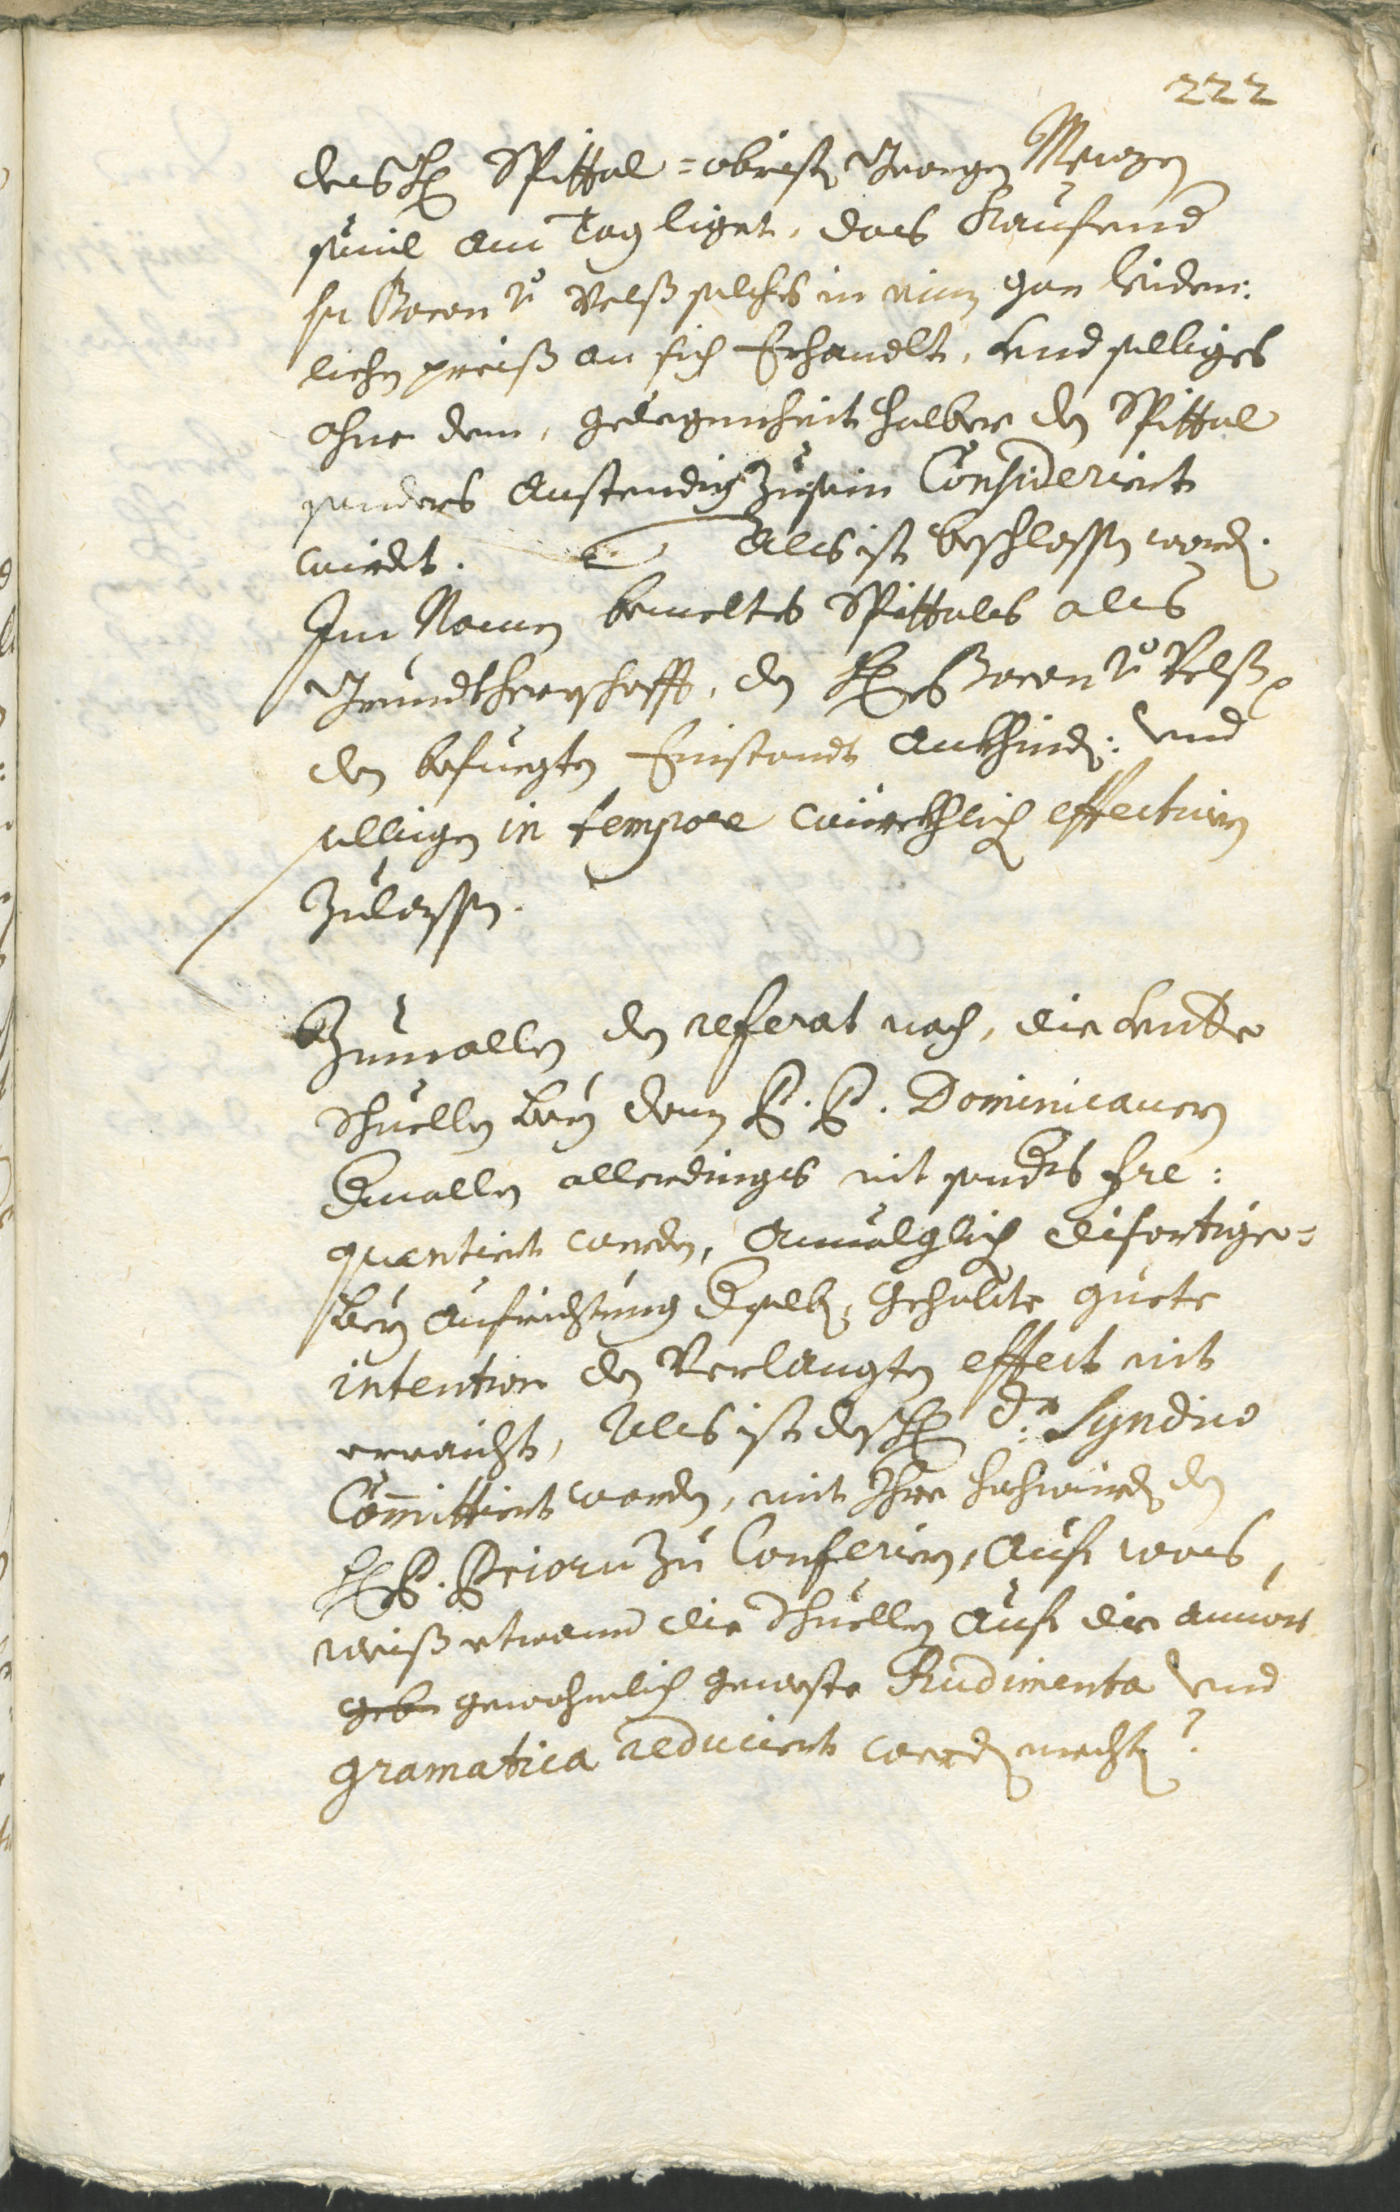 222
des H Spittal=obrist Georgen Menzen
souil am Tag ligt, das Kaufend
H Baron v Velß solches in einem gar leiden:
lichen preiß an sich Erhandlt, und selbiges
ohne dem, gelegenheit halber dem Spittal
sonders anstendig zu sein Considerirt
wirdt. Als ist beschlossen word.
Im Namen bemelts Spittals als
Grundtherrschafft, dem H Baron v Velß
den befuegten Einstandt ankhind: und
selbigen in tempore würckhlich effectuirn
zulassen.
Zumallen dem referat nach, die
Schuellen bey denen P. P. Dominicanern
dermallen allerdings nit sonders fre:
quentiert werden, diefertige=
bey aufrichtung gehabte guete
intention den verlangten effect nit
erraicht, Als ist des H D: Syndico
Committirt worden, mit Ihro hochwürd dem
H P. Priorn zu Conferirn, auf was
weiß etwann die Schuellen auf die
geb gewohnlich geweste Rudimenta und
gramatica reducirt werd mecht?